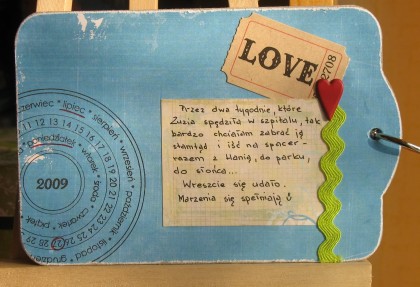 LOVE
2708
Przez dwa tygodnie, które
Zuzia spędziła w szpitalu, tak
bardzo chciałam zabrać ją
stamtąd i iść na spacer -
razem z Hanią, do parku,
do słońca...
Wreszcie się udało.
Marzenia się spełniają
czerwiec * lipiec * sierpień * wrzesień * październik * listopad * grudzień
11 12 13 14 15 16 17 18 19 20 21 22 23 24 25 26 27 28 29
poniedziałek * wtorek * środa * czwartek * piątek
2009